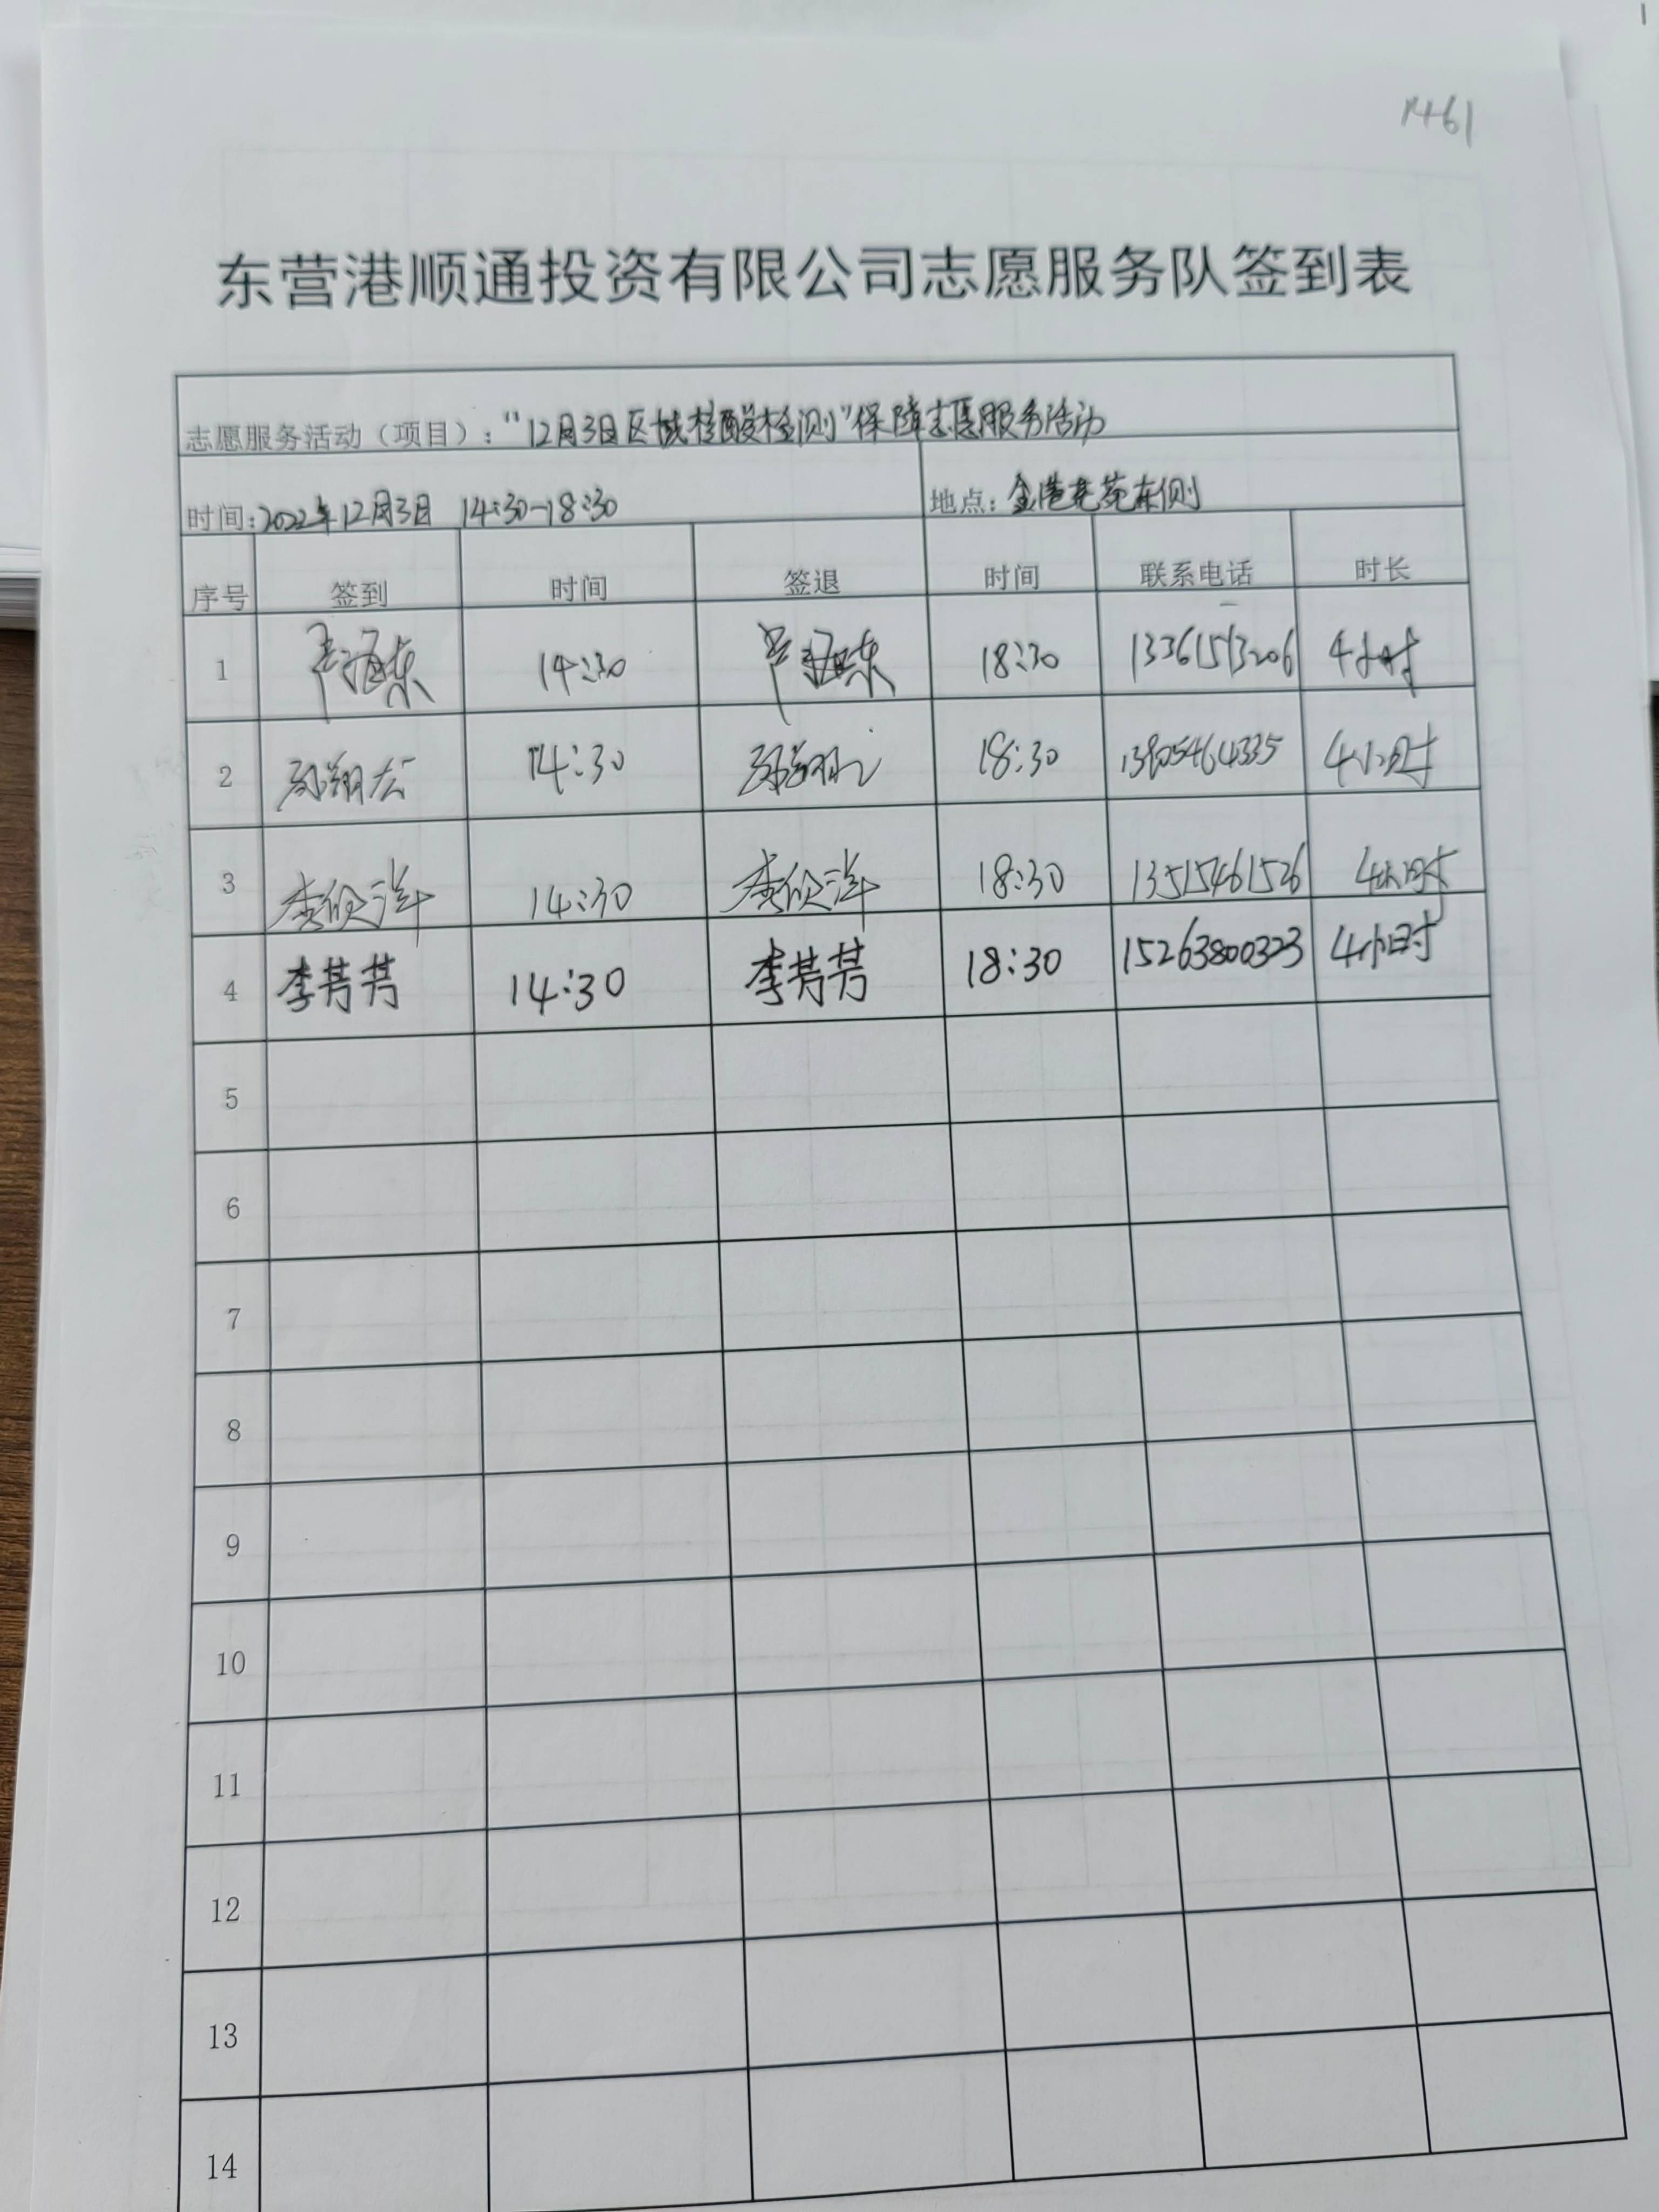 1461
东营港顺通投资有限公司志愿服务队签到表
志愿服务活动（项目）：“12月3日区域核酸检测”保障志愿服务活动
时间：2022年12月3日 14:30-18:30 地点：金港苑东侧
序号 签到 时间 签退 时间 联系电话 时长
1 14:30 18:30 4小时
2 14:30 18:30 13805464335 4小时
3 李欣洋 14:30 李欣洋 18:30 13515461526 4小时
4 李芳芳 14:30 李芳芳 18:30 15263800323 4小时
5
6
7
8
9
10
11
12
13
14